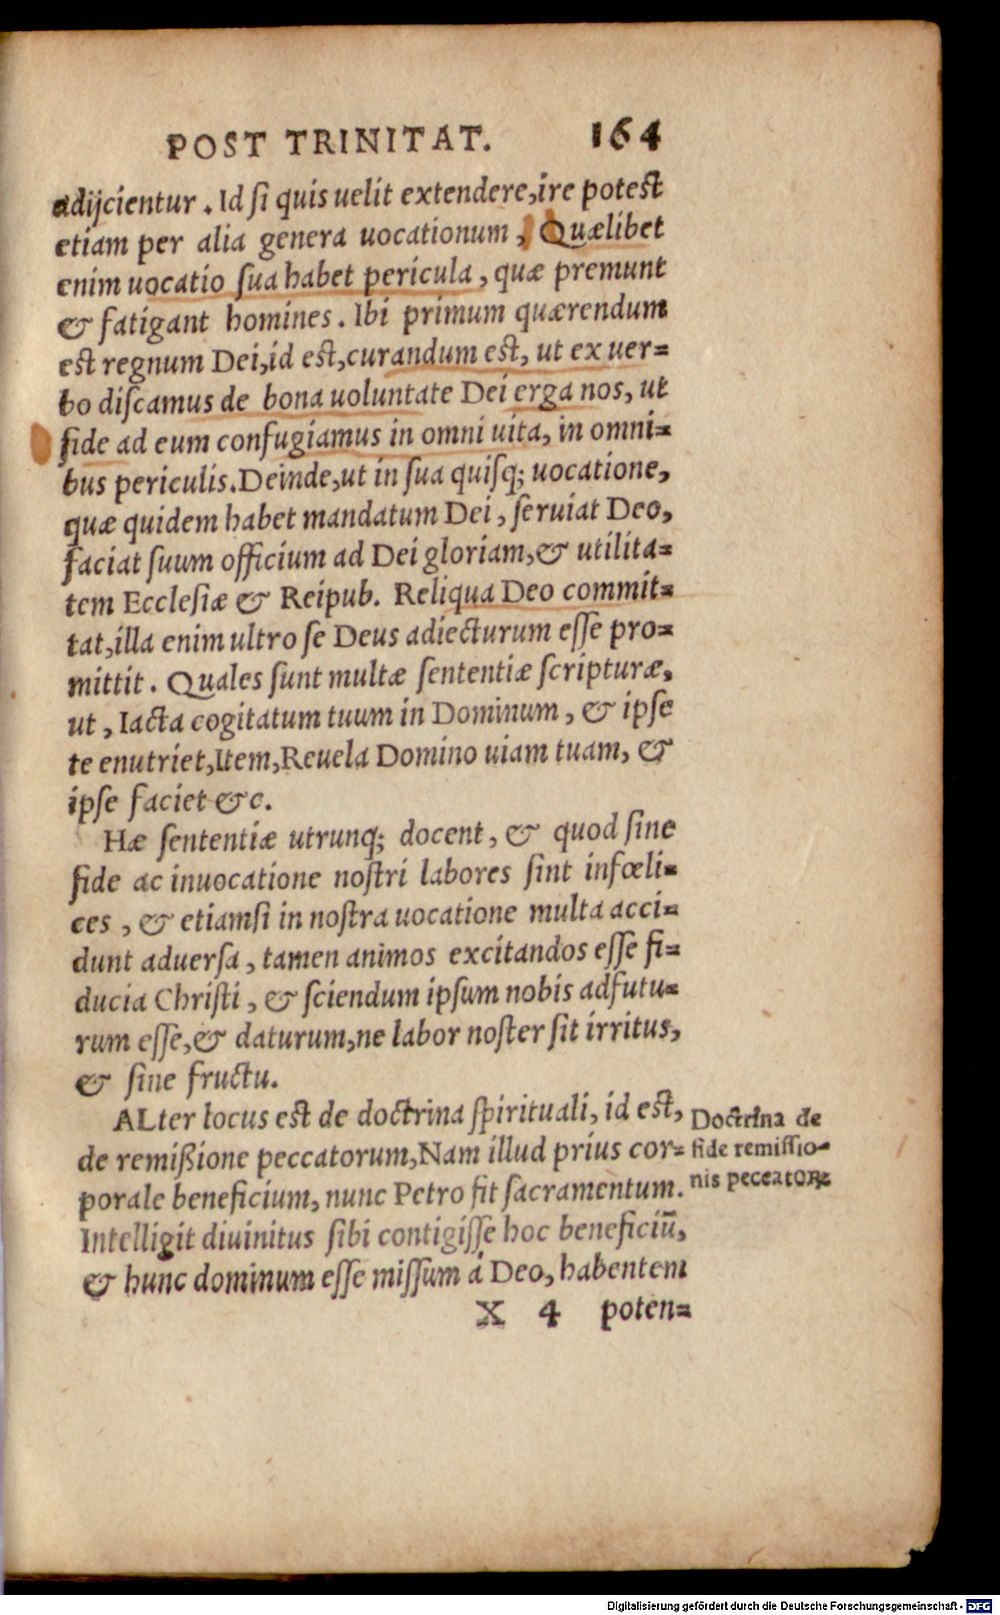 POST TRINITAT. 164
adijcientur . Id ſi quis uelit extendere,ire poteſt
etiam per alia genera uocationum , Quælibet
enim uocatio ſua habet pericula , quæ premunt
& fatigant homines . Ibi primum quærendum
eſt regnum Dei,id eſt,curandum eſt, ut ex uer=
bo diſcamus de bona uoluntate Dei erga nos, ut
fide ad eum confugiamus in omni uita, in omni=
bus periculis.Deinde,ut in ſua quiſq; uocatione,
quæ quidem habet mandatum Dei , ſeruiat Deo,
faciat ſuum officium ad Dei gloriam,& utilita=
tem Eccleſiæ & Reipub. Reliqua Deo commit=
tat,illa enim ultro ſe Deus adiecturum eſſe pro=
mittit . Quales ſunt multæ ſententiæ ſcripturæ,
ut , Iacta cogitatum tuum in Dominum , & ipſe
te enutriet,Item,Reuela Domino uiam tuam, &
ipſe faciet &c.
Hæ ſententiæ utrunq; docent , & quod ſine
fide ac inuocatione noſtri labores ſint infœli=
ces , & etiamſi in noſtra uocatione multa acci=
dunt aduerſa , tamen animos excitandos eſſe fi=
ducia Chriſti , & ſciendum ipſum nobis adfutu=
rum eſſe,& daturum,ne labor noſter ſit irritus,
& ſine fructu.
ALter locus eſt de doctrina ſpirituali, id eſt,
de remißione peccatorum,Nam illud prius cor=
porale beneficium, nunc Petro fit ſacramentum.
Intelligit diuinitus ſibi contigiſſe hoc beneficiũ,
& hunc dominum eſſe miſſum á Deo, habentem
X 4 poten=
Doctrina de
fide remiſſio-
nis peccatoꝝ
Digitalisierung gefördert durch die Deutsche Forschungsgemeinschaft - DFG